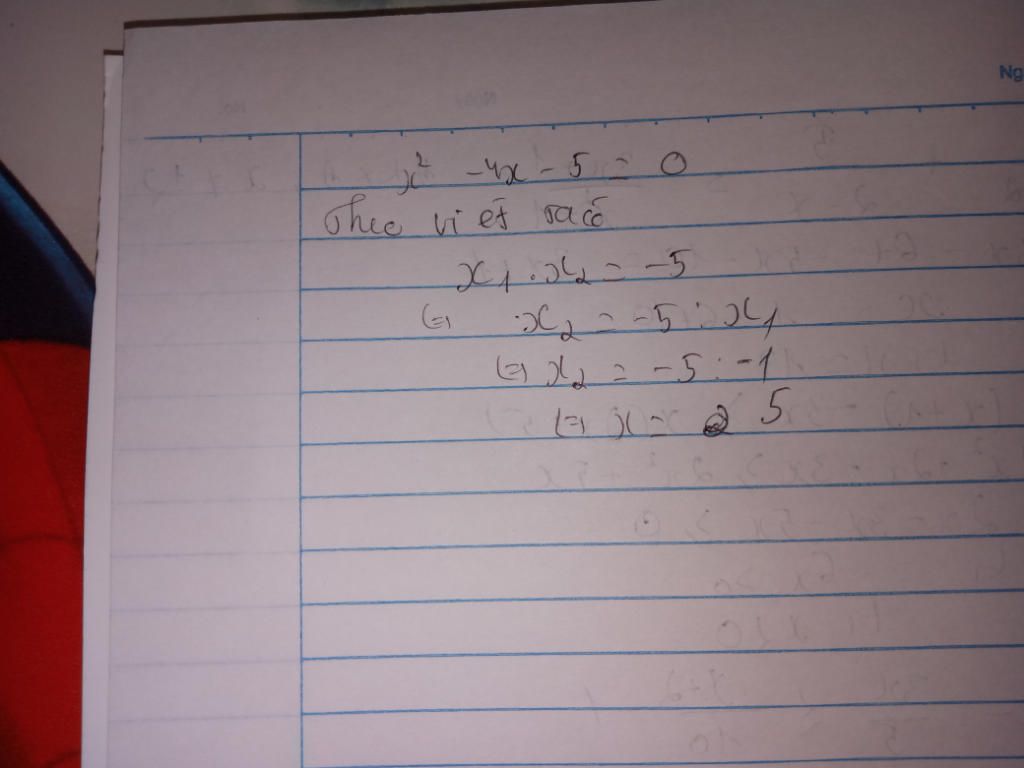 Ng
x² - 4x - 5 = 0
Theo vi ét ta có
x₁ . x₂ = -5
⇔ x₂ = -5 : x₁
⇔ x₂ = -5 : -1
⇔ x = 5